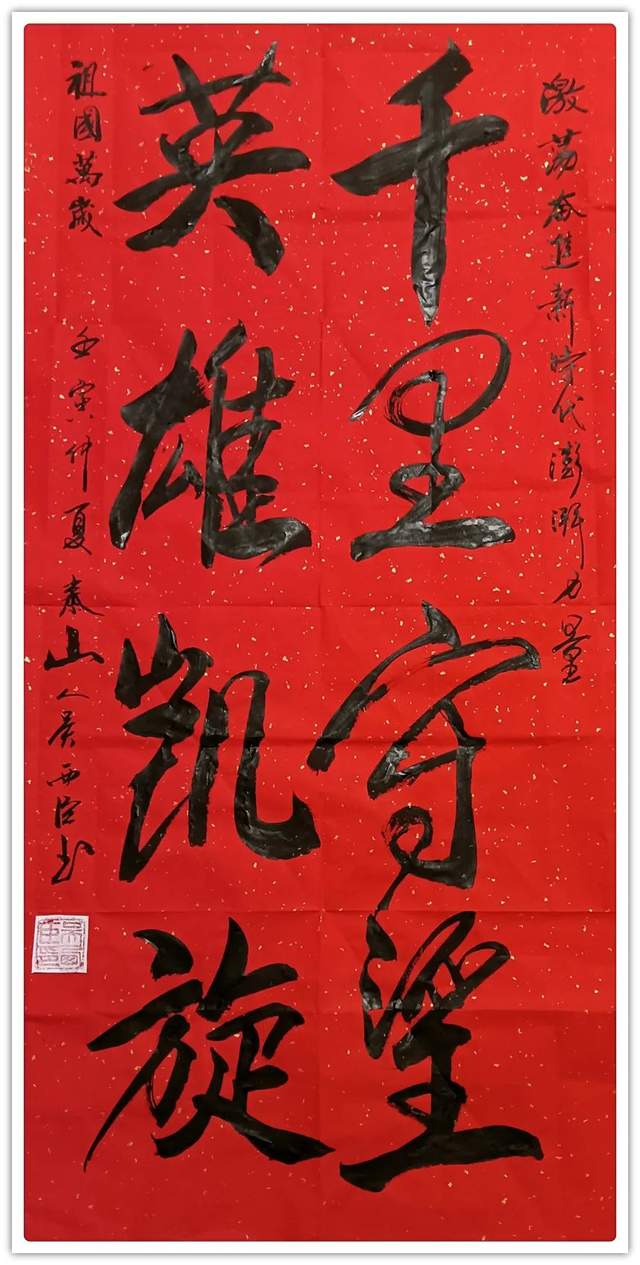 激荡奋進新时代澎湃力量
千里守望
英雄凯旋
祖國萬歲
壬寅仲夏泰山人吴西臣书